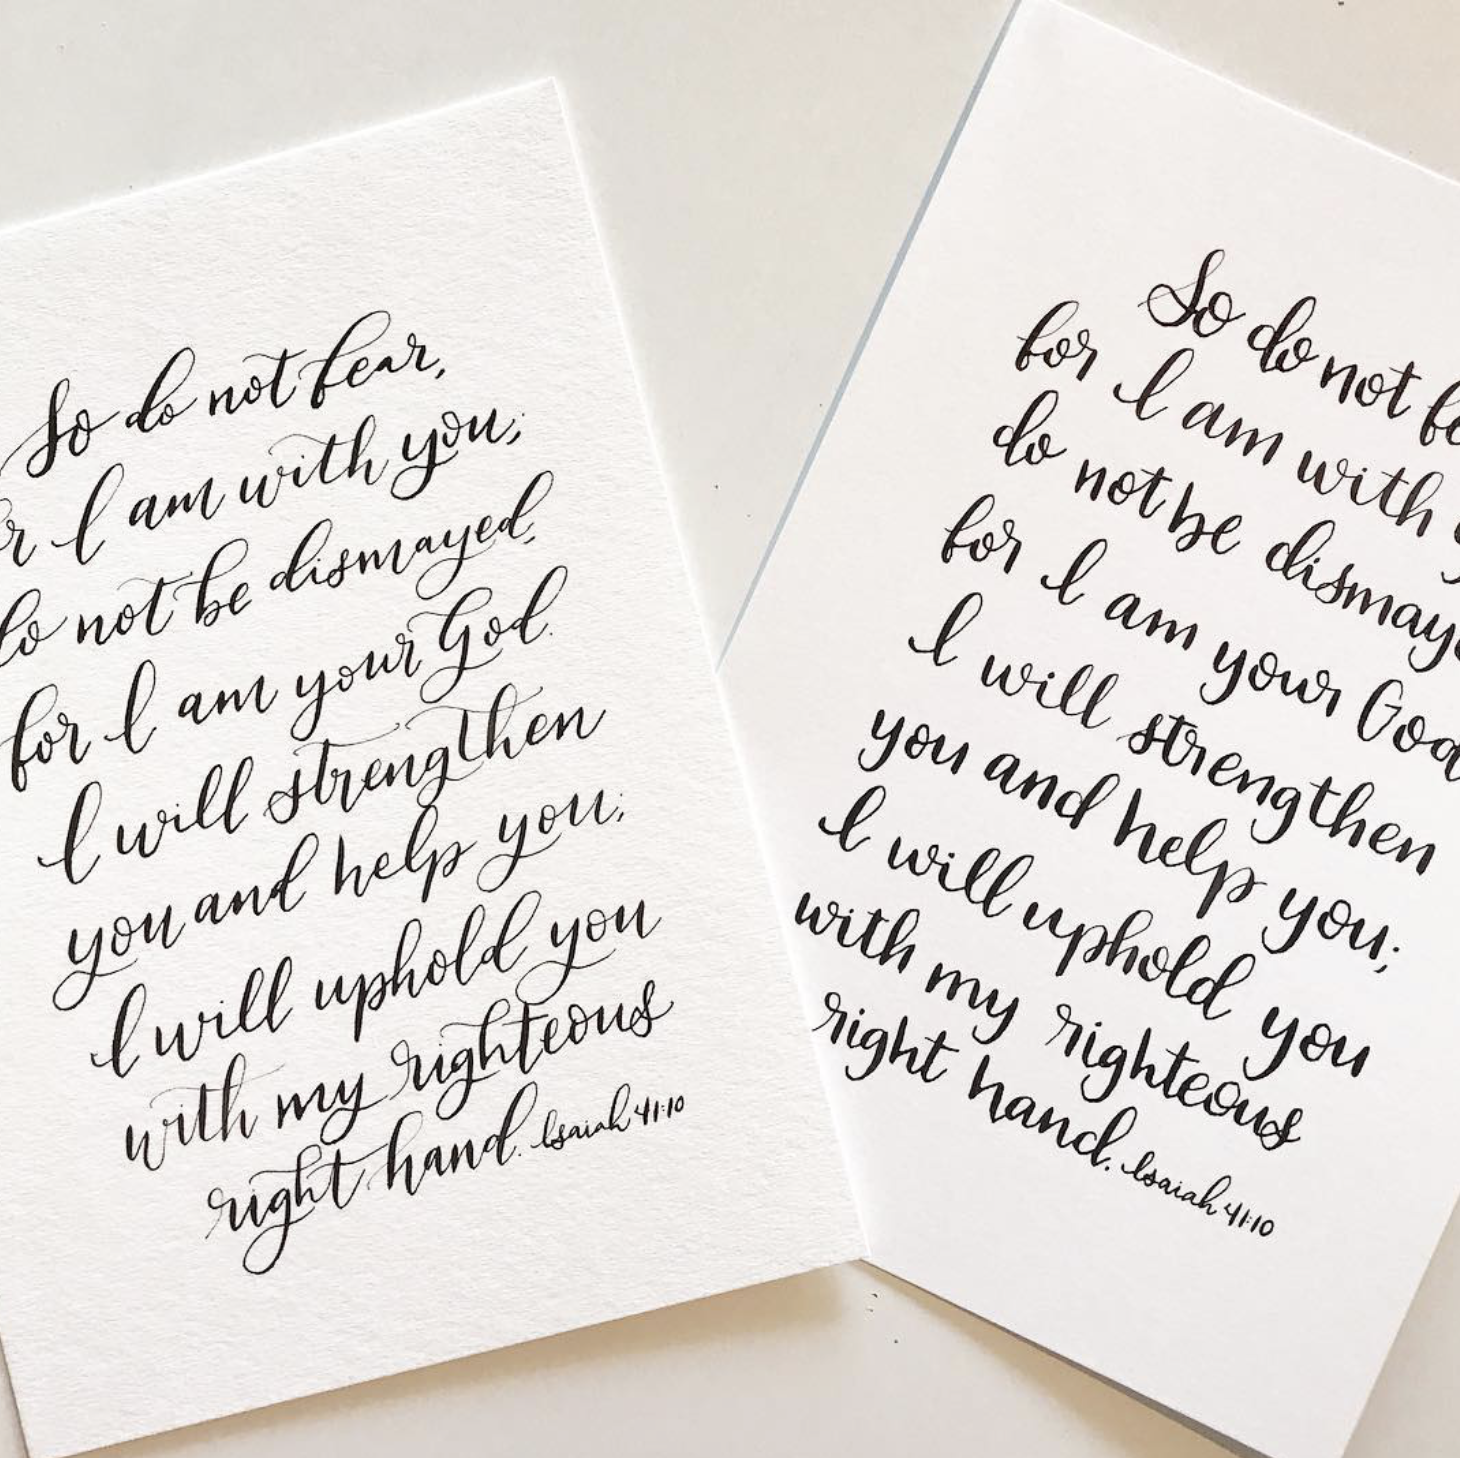 So do not fear,
for I am with you;
do not be dismayed,
for I am your God.
I will strengthen
you and help you;
I will uphold you
with my righteous
right hand. Isaiah 41:10
So do not
for I am with
do not be
for I am your God
I will strengthen
you and help you;
I will uphold you
with my righteous
right hand. Isaiah 41:10